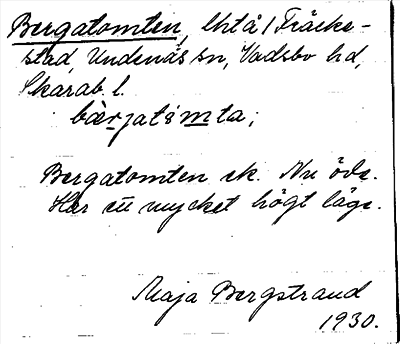 Bergatomten, Uhtå/Fräcke-
stad, Undenäs sn, Vadsbo hd,
Skarab. l.
bærjatåmta;
Bergatomten ek. Nu öde.
Har ett mycket högt läge.
Maja Bergstrand
1930.